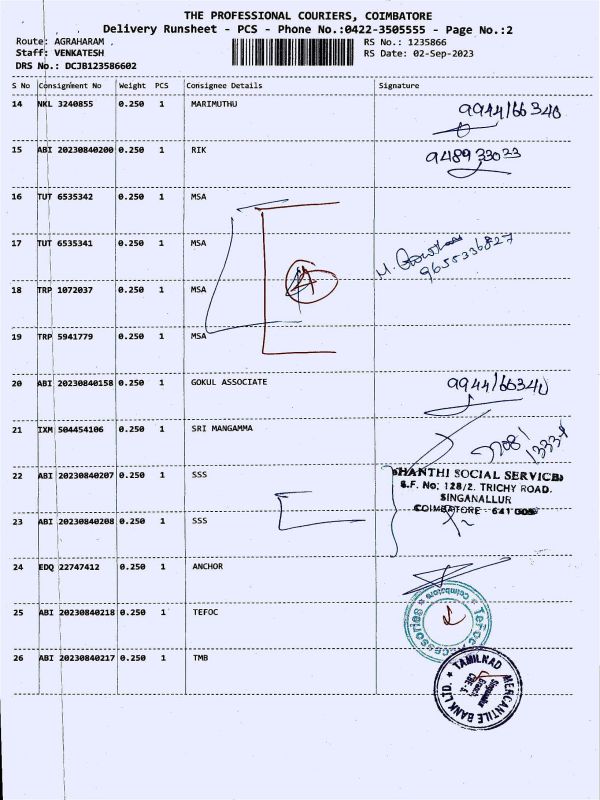 THE PROFESSIONAL COURIERS, COIMBATORE
Delivery Runsheet - PCS - Phone No.:0422-3505555 - Page No.:2
Route: AGRAHARAM .
Staff: VENKATESH
DRS No.: DCJB123586602
RS No.: 1235866
RS Date: 02-Sep-2023
S No Consignment No Weight PCS Consignee Details Signature
14 NKL 3240855 0.250 1 MARIMUTHU 9944166340
15 ABI 20230840200 0.250 1 RIK 9489 33033
16 TUT 6535342 0.250 1 MSA
17 TUT 6535341 0.250 1 MSA
9655336827
4
18 TRP 1072037 0.250 1 MSA
19 TRP 5941779 0.250 1 MSA
20 ABI 20230840158 0.250 1 GOKUL ASSOCIATE 9944166340
21 IXM 504454106 0.250 1 SRI MANGAMMA
22 ABI 20230840207 0.250 1 SSS
SHANTHI SOCIAL SERVICE
S.F. No: 128/2. TRICHY ROAD.
SINGANALLUR
COIMBATORE - 641 005
23 ABI 20230840208 0.250 1 SSS
24 EDQ 22747412 0.250 1 ANCHOR
25 ABI 20230840218 0.250 1 TEFOC
Tefoc Accessories * Coimbatore *
26 ABI 20230840217 0.250 1 TMB
TAMILNAD MERCANTILE BANK LTD.
Branch